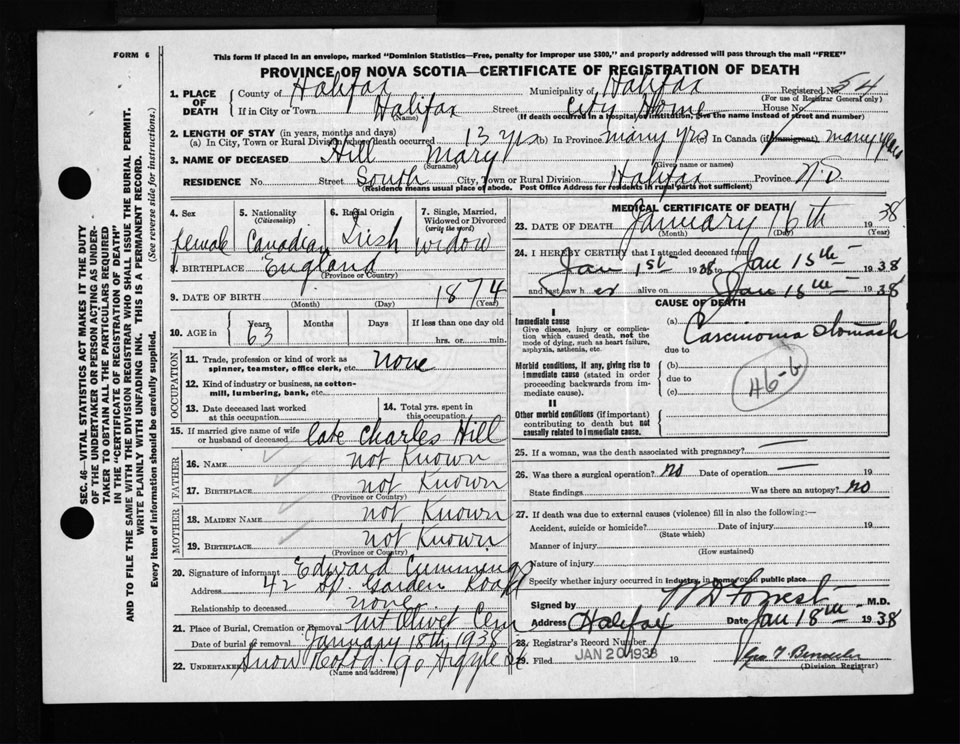 FORM 6
This form if placed in an envelope, marked "Dominion Statistics—Free, penalty for improper use $300," and properly addressed will pass through the mail "FREE"
PROVINCE OF NOVA SCOTIA—CERTIFICATE OF REGISTRATION OF DEATH
1. PLACE OF DEATH County of Halifax Municipality of Halifax Registered No. 54
(For use of Registrar General only)
If in City or Town Halifax Street City Home House No.
(Name) (If death occurred in a hospital or institution, give the name instead of street and number)
2. LENGTH OF STAY (in years, months and days)
(a) In City, Town or Rural Division where death occurred 13 yrs (b) In Province many yrs (c) In Canada (if immigrant) many years
3. NAME OF DECEASED Hill Mary
(Surname) (Given name or names)
RESIDENCE No. Street South City, Town or Rural Division Halifax Province N.S.
(Residence means usual place of abode. Post Office Address for residents in rural parts not sufficient)
4. Sex female
5. Nationality (Citizenship) Canadian
6. Racial Origin Irish
7. Single, Married, Widowed or Divorced (write the word) widow
8. BIRTHPLACE England
(Province or Country)
9. DATE OF BIRTH 1874
(Month) (Day) (Year)
10. AGE in Years Months Days If less than one day old
63 hrs. or min.
OCCUPATION
11. Trade, profession or kind of work as spinner, teamster, office clerk, etc. none
12. Kind of industry or business, as cotton-mill, lumbering, bank, etc.
13. Date deceased last worked at this occupation
14. Total yrs. spent in this occupation
15. If married give name of wife or husband of deceased late Charles Hill
FATHER
16. NAME not Known
17. BIRTHPLACE not Known
(Province or Country)
MOTHER
18. MAIDEN NAME not Known
19. BIRTHPLACE not Known
(Province or Country)
20. Signature of informant Edward Cummings
Address 42 Sp. Garden Road
Relationship to deceased none
21. Place of Burial, Cremation or Removal Mt Olivet Cem
Date of burial or removal January 18th 1938
22. UNDERTAKER Snow 90 Argyle St.
(Name and address)
MEDICAL CERTIFICATE OF DEATH
23. DATE OF DEATH January 16th 1938
(Month) (Day) (Year)
24. I HEREBY CERTIFY that I attended deceased from
Jan 1st 1938 to Jan 15th 1938
and last saw her alive on Jan 15th 1938
CAUSE OF DEATH
I
Immediate cause
Give disease, injury or complication which caused death, not the mode of dying, such as heart failure, asphyxia, asthenia, etc.
(a) Carcinoma stomach
due to
Morbid conditions, if any, giving rise to immediate cause (stated in order proceeding backwards from immediate cause)
(b)
due to
(c)
46-b
II
Other morbid conditions (if important) contributing to death but not causally related to immediate cause.
25. If a woman, was the death associated with pregnancy? —
26. Was there a surgical operation? no Date of operation — 19
State findings Was there an autopsy? no
27. If death was due to external causes (violence) fill in also the following:—
Accident, suicide or homicide? Date of injury 19
(State which)
Manner of injury
(How sustained)
Nature of injury
Specify whether injury occurred in industry, in home or in public place
Signed by W D Forrest M.D.
Address Halifax Date Jan 18th 1938
28. Registrar's Record Number
29. Filed JAN 20 1938 19
(Division Registrar)
SEC. 46—VITAL STATISTICS ACT MAKES IT THE DUTY
OF THE UNDERTAKER OR PERSON ACTING AS UNDER-
TAKER TO OBTAIN ALL THE PARTICULARS REQUIRED
IN THE "CERTIFICATE OF REGISTRATION OF DEATH"
AND TO FILE THE SAME WITH THE DIVISION REGISTRAR WHO SHALL ISSUE THE BURIAL PERMIT.
WRITE PLAINLY WITH UNFADING INK. THIS IS A PERMANENT RECORD.
Every item of information should be carefully supplied. (See reverse side for instructions.)